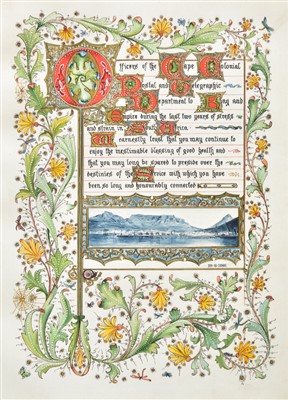 Officers of the Cape Colonial
Postal and Telegraphic
Department to King and
Empire during the last two years of stress
and strain in South Africa.
We earnestly trust that you may continue to
enjoy the inestimable blessing of good health and
that you may long be spared to preside over the
destinies of the Service with which you have
been so long and honourably connected